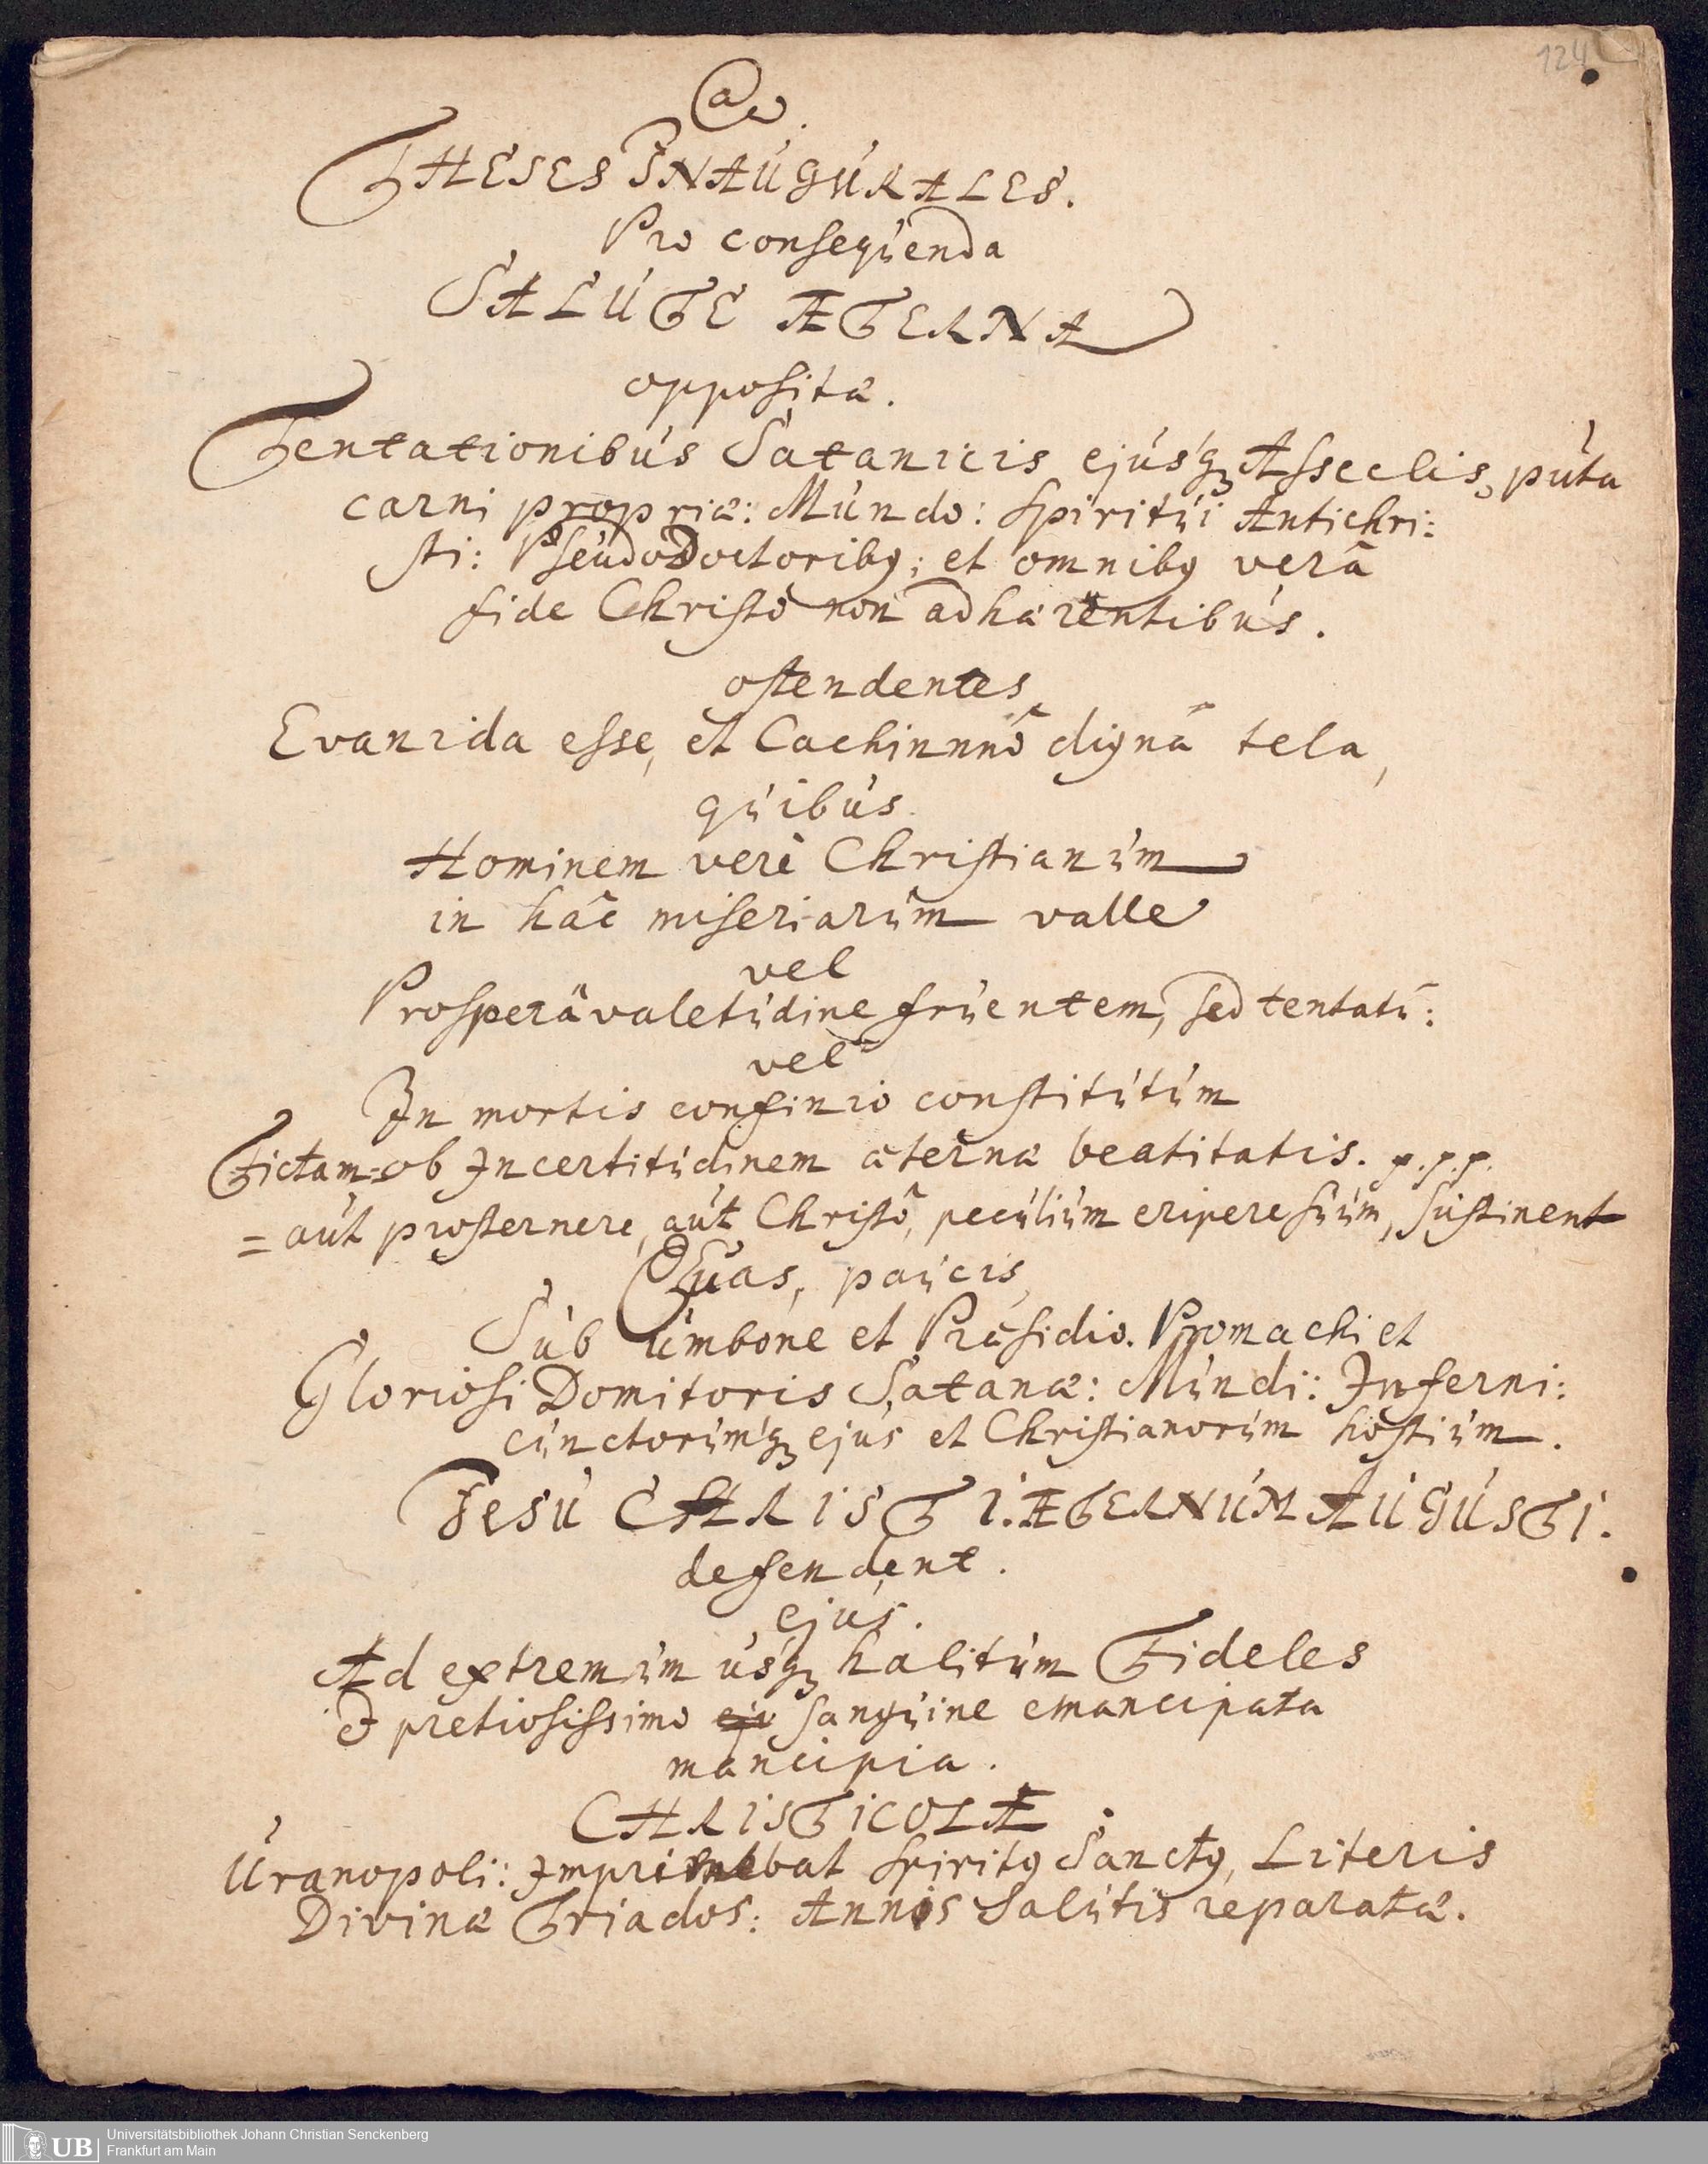 124
THESES INAUGURALES.
Pro consequenda
SALUTE ÆTERNA
oppositæ.
Tentationibus Satanicis ejusq; Asseclis, puta
carni propriæ: Mundo: Spiritui Antichri:
sti: PseudoDoctoribꝰ; et omnibꝰ verâ
fide Christo non adhærentibus.
ostendentes
Evanida esse, et Cachinnnô dignâ tela,
quibus
Hominem verè Christianum
in hâc miseriarum valle
vel
Prosperâ valetudine fruentem, sed tentatū:
vel
In mortis confinio constitutum
Fictam=ob Incertitudinem æternæ beatitatis. p.p.p.
=aut prosternere, aut Christô, peculium eripere suum, sustinent
Quas, paucis,
Sub umbone et Præsidio. Promachi et
Gloriosi Domitoris Satanæ: Mundi: Inferni:
cunctorumq; ejus et Christianorum hostium.
JESU CHRISTI. ÆTERNUM AUGUSTI.
defendent.
ejus.
Ad extremum usq; halitum Fideles
Et pretiosissimo eju sanguine emancipata
mancipia.
CHRISTICOLÆ.
Uranopoli: Imprimebat Spiritꝰ Sanctꝰ, Literis
Divinæ Triados: Annis Salutis reparatæ.
UB
Universitätsbibliothek Johann Christian Senckenberg
Frankfurt am Main